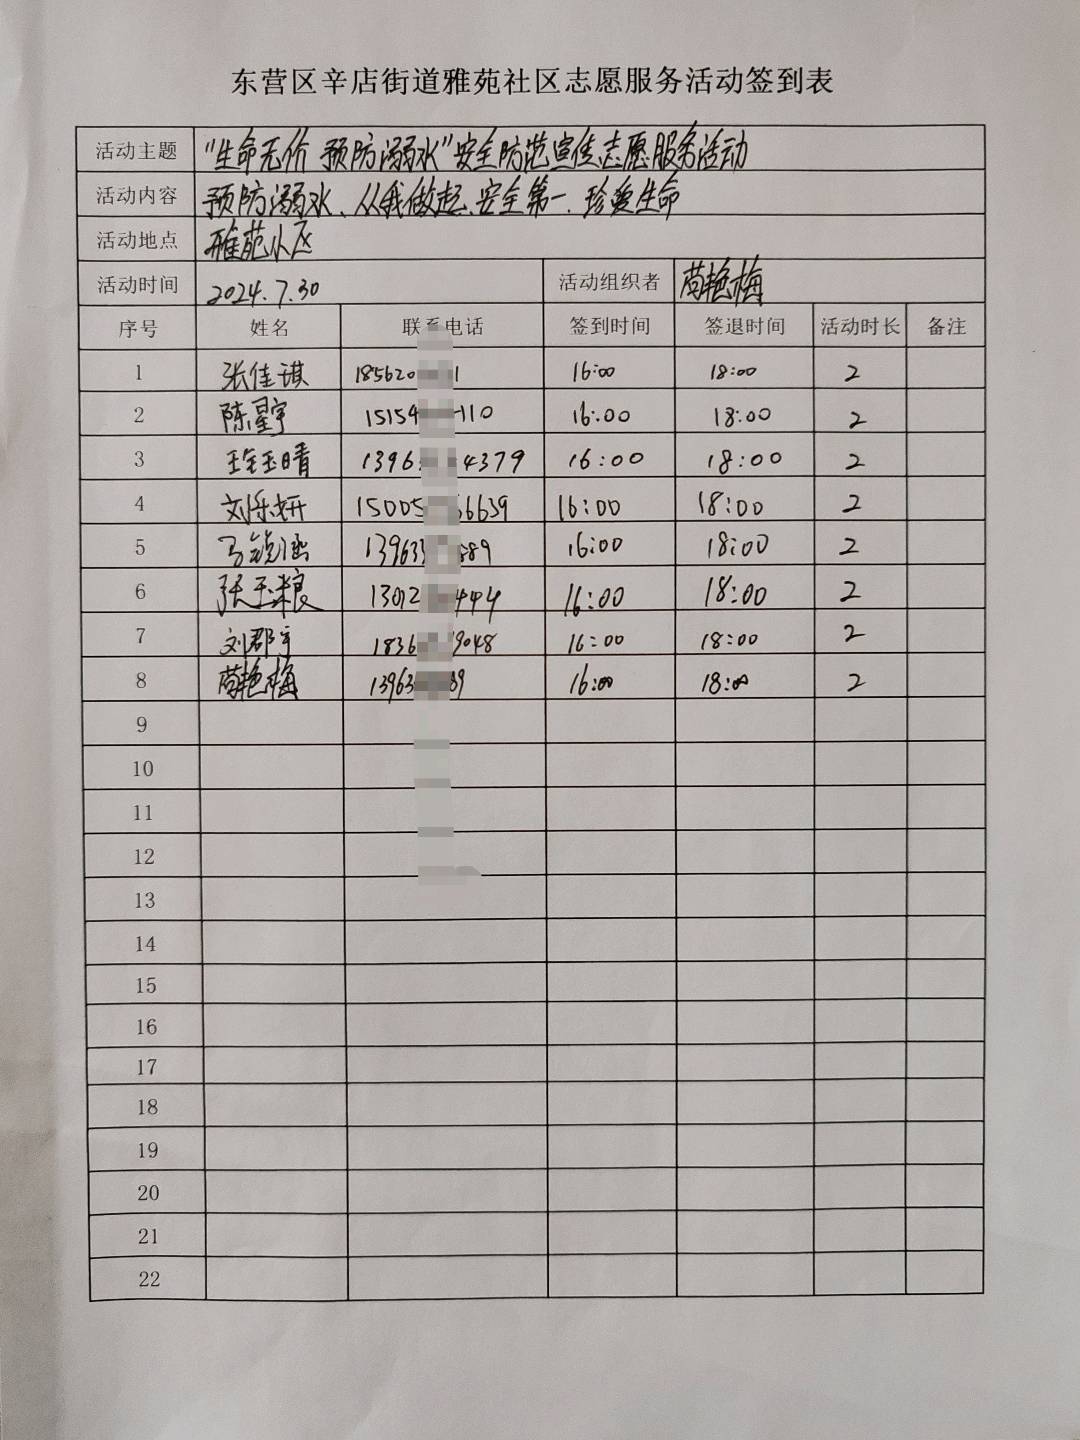 东营区辛店街道雅苑社区志愿服务活动签到表
活动主题 “生命无价 预防溺水”安全防范宣传志愿服务活动
活动内容 预防溺水、从我做起、安全第一、珍爱生命
活动地点 雅苑小区
活动时间 2024.7.30 活动组织者 苟艳梅
序号 姓名 联系电话 签到时间 签退时间 活动时长 备注
1 张佳琪 185620 1 16:00 18:00 2
2 陈星宇 15154 110 16:00 18:00 2
3 1396 4379 16:00 18:00 2
4 刘乐妍 15005 6639 16:00 18:00 2
5 13963 89 16:00 18:00 2
6 张玉粮 13012 444 16:00 18:00 2
7 刘郡宇 1836 9048 16:00 18:00 2
8 苟艳梅 13963 89 16:00 18:00 2
9
10
11
12
13
14
15
16
17
18
19
20
21
22